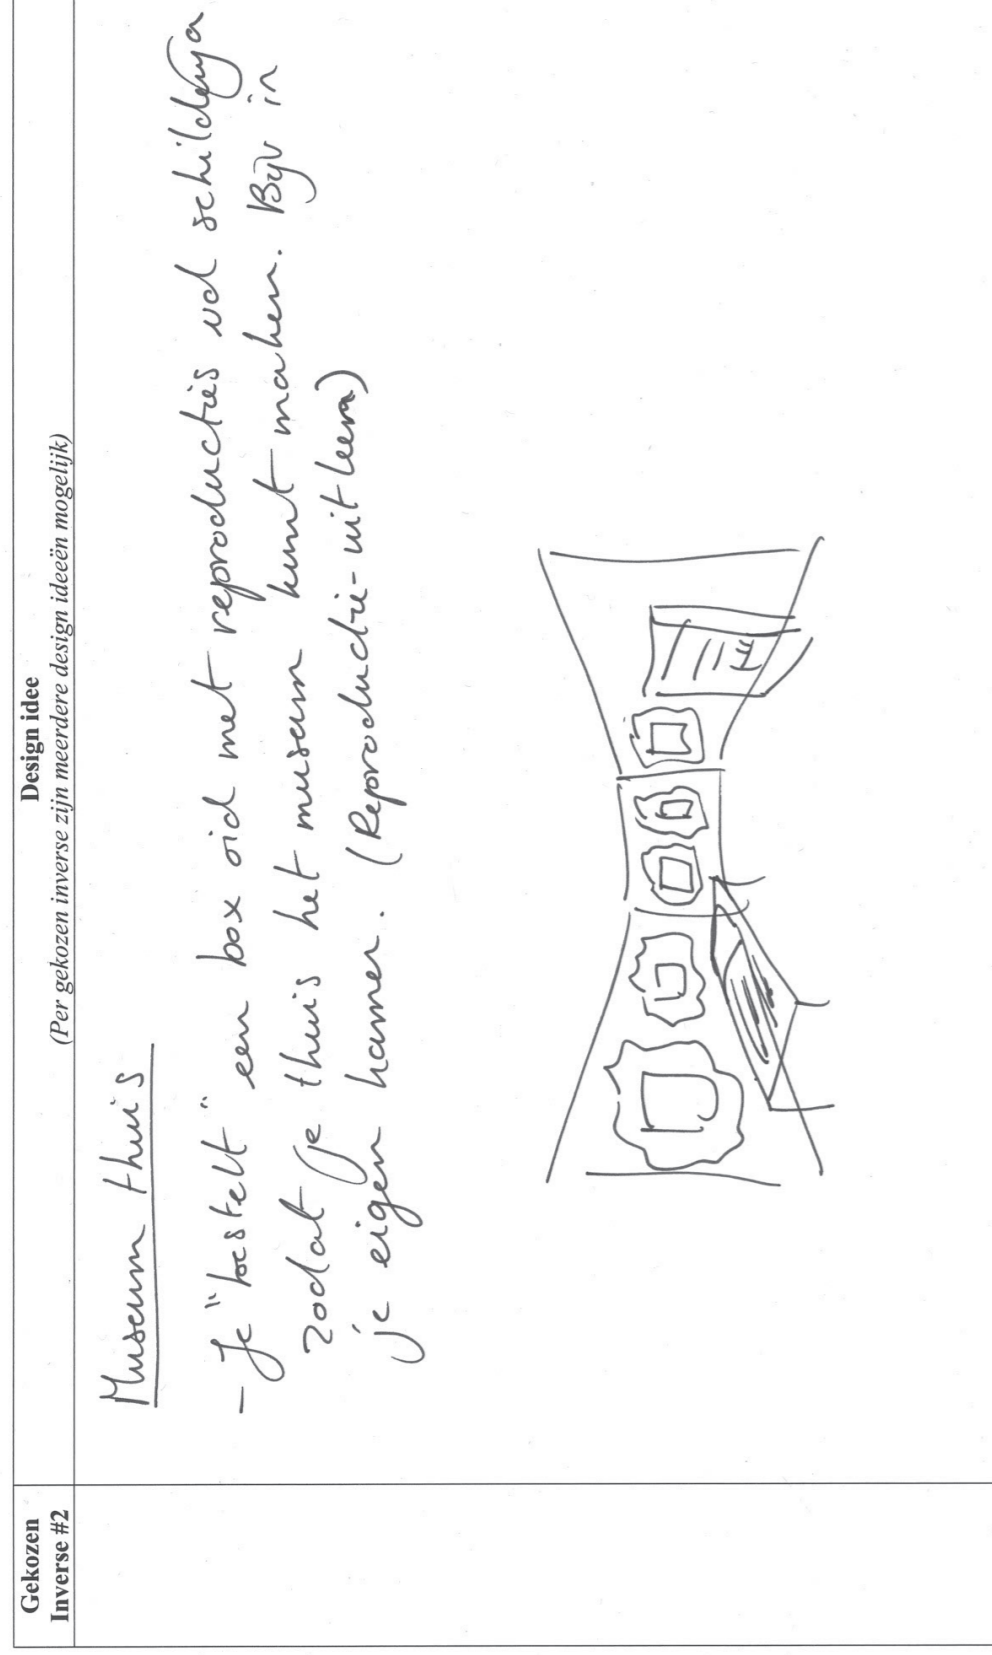 Gekozen
Inverse #2
Design idee
(Per gekozen inverse zijn meerdere design ideeën mogelijk)
Museum thuis
- Je "bestelt" een box oid met reproducties vd schilderijen
zodat je thuis het museum kunt maken. Bijv in
je eigen kamer. (Reproductie-uitleen)